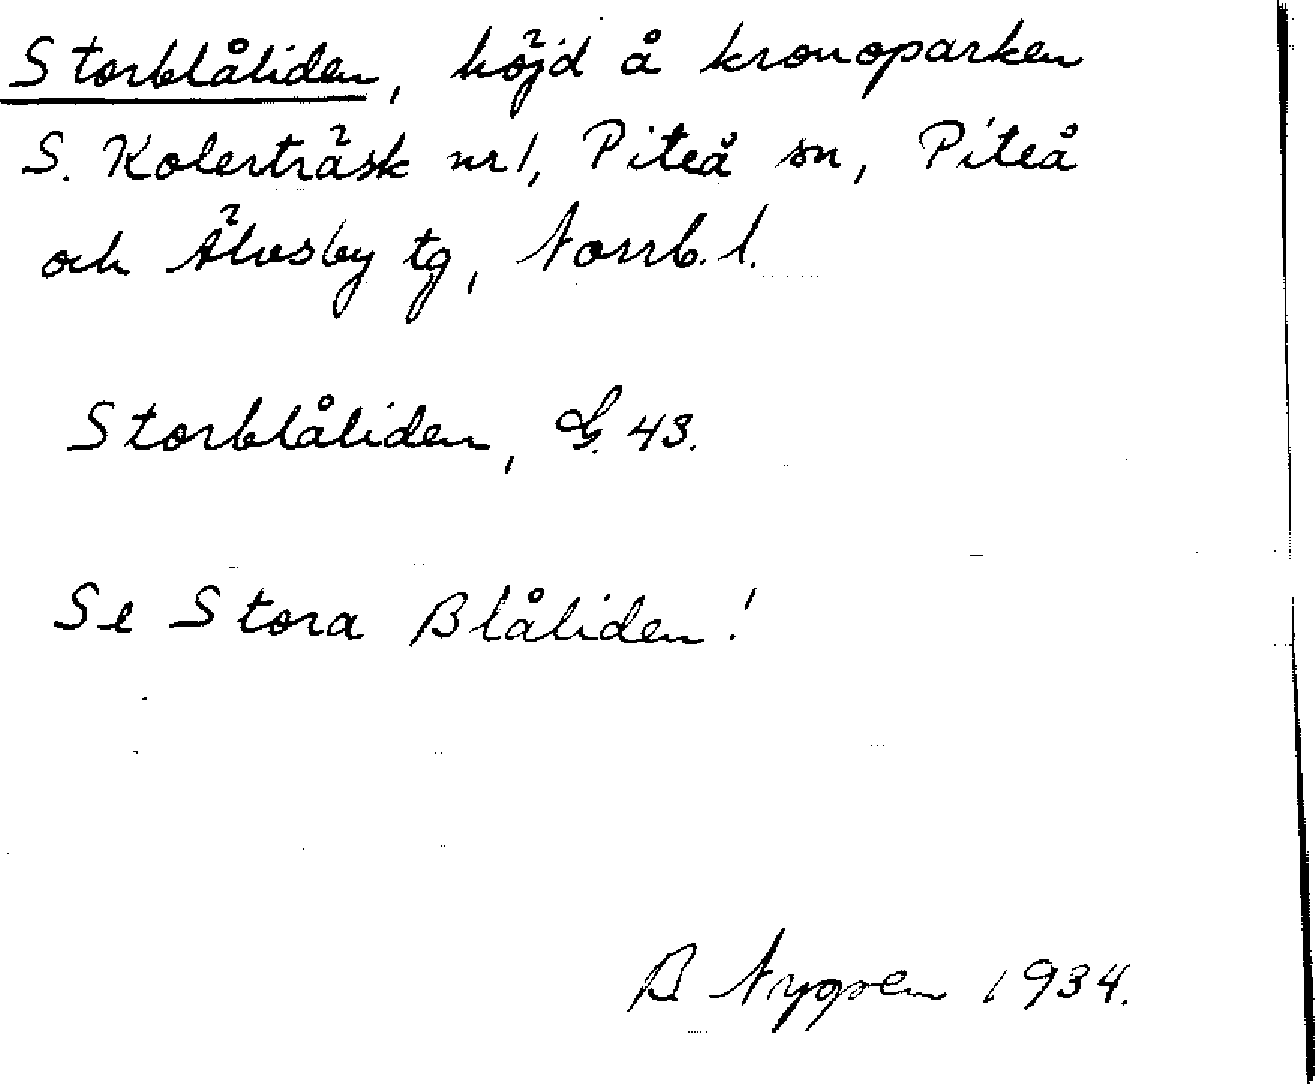 Storblåliden, höjd å kronoparken
S. Kolerträsk nr 1, Piteå sn, Piteå
och Älvsby tg, Norrb. l.
Storblåliden, G. 43.
Se Stora Blåliden!
B Nygren 1934.